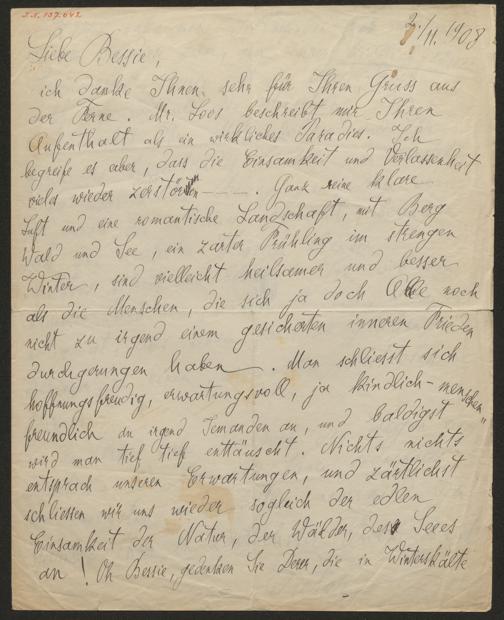 I.N. 107.642
2./11. 1908
Liebe Bessie,
ich danke Ihnen sehr für Ihren Gruss aus
der Ferne. Mr. Loos beschreibt mir Ihren
Aufenthalt als ein wirkliches Paradies. Ich
begreife es aber, dass die Einsamkeit und Verlassenheit
vieles wieder zerstören — —. Ganz reine klare
Luft und eine romantische Landschaft, mit Berg
Wald und See, ein zarter Frühling im strengen
Winter, sind vielleicht heilsamer und besser
als die Menschen, die sich ja doch Alle noch
nicht zu irgend einem gesicherten inneren Frieden
durchgerungen haben —. Man schliesst sich
hoffnungsfreudig, erwartungsvoll, ja kindlich-menschen-
freundlich an irgend Jemanden an, und baldigst
wird man tief tief enttäuscht. Nichts nichts
entsprach unseren Erwartungen, und zärtlichst
schliessen wir uns wieder sogleich der edlen
Einsamkeit der Natur, der Wälder, des Seees
an! Oh Bessie, gedenken Sie Derer, die in Winterskälte